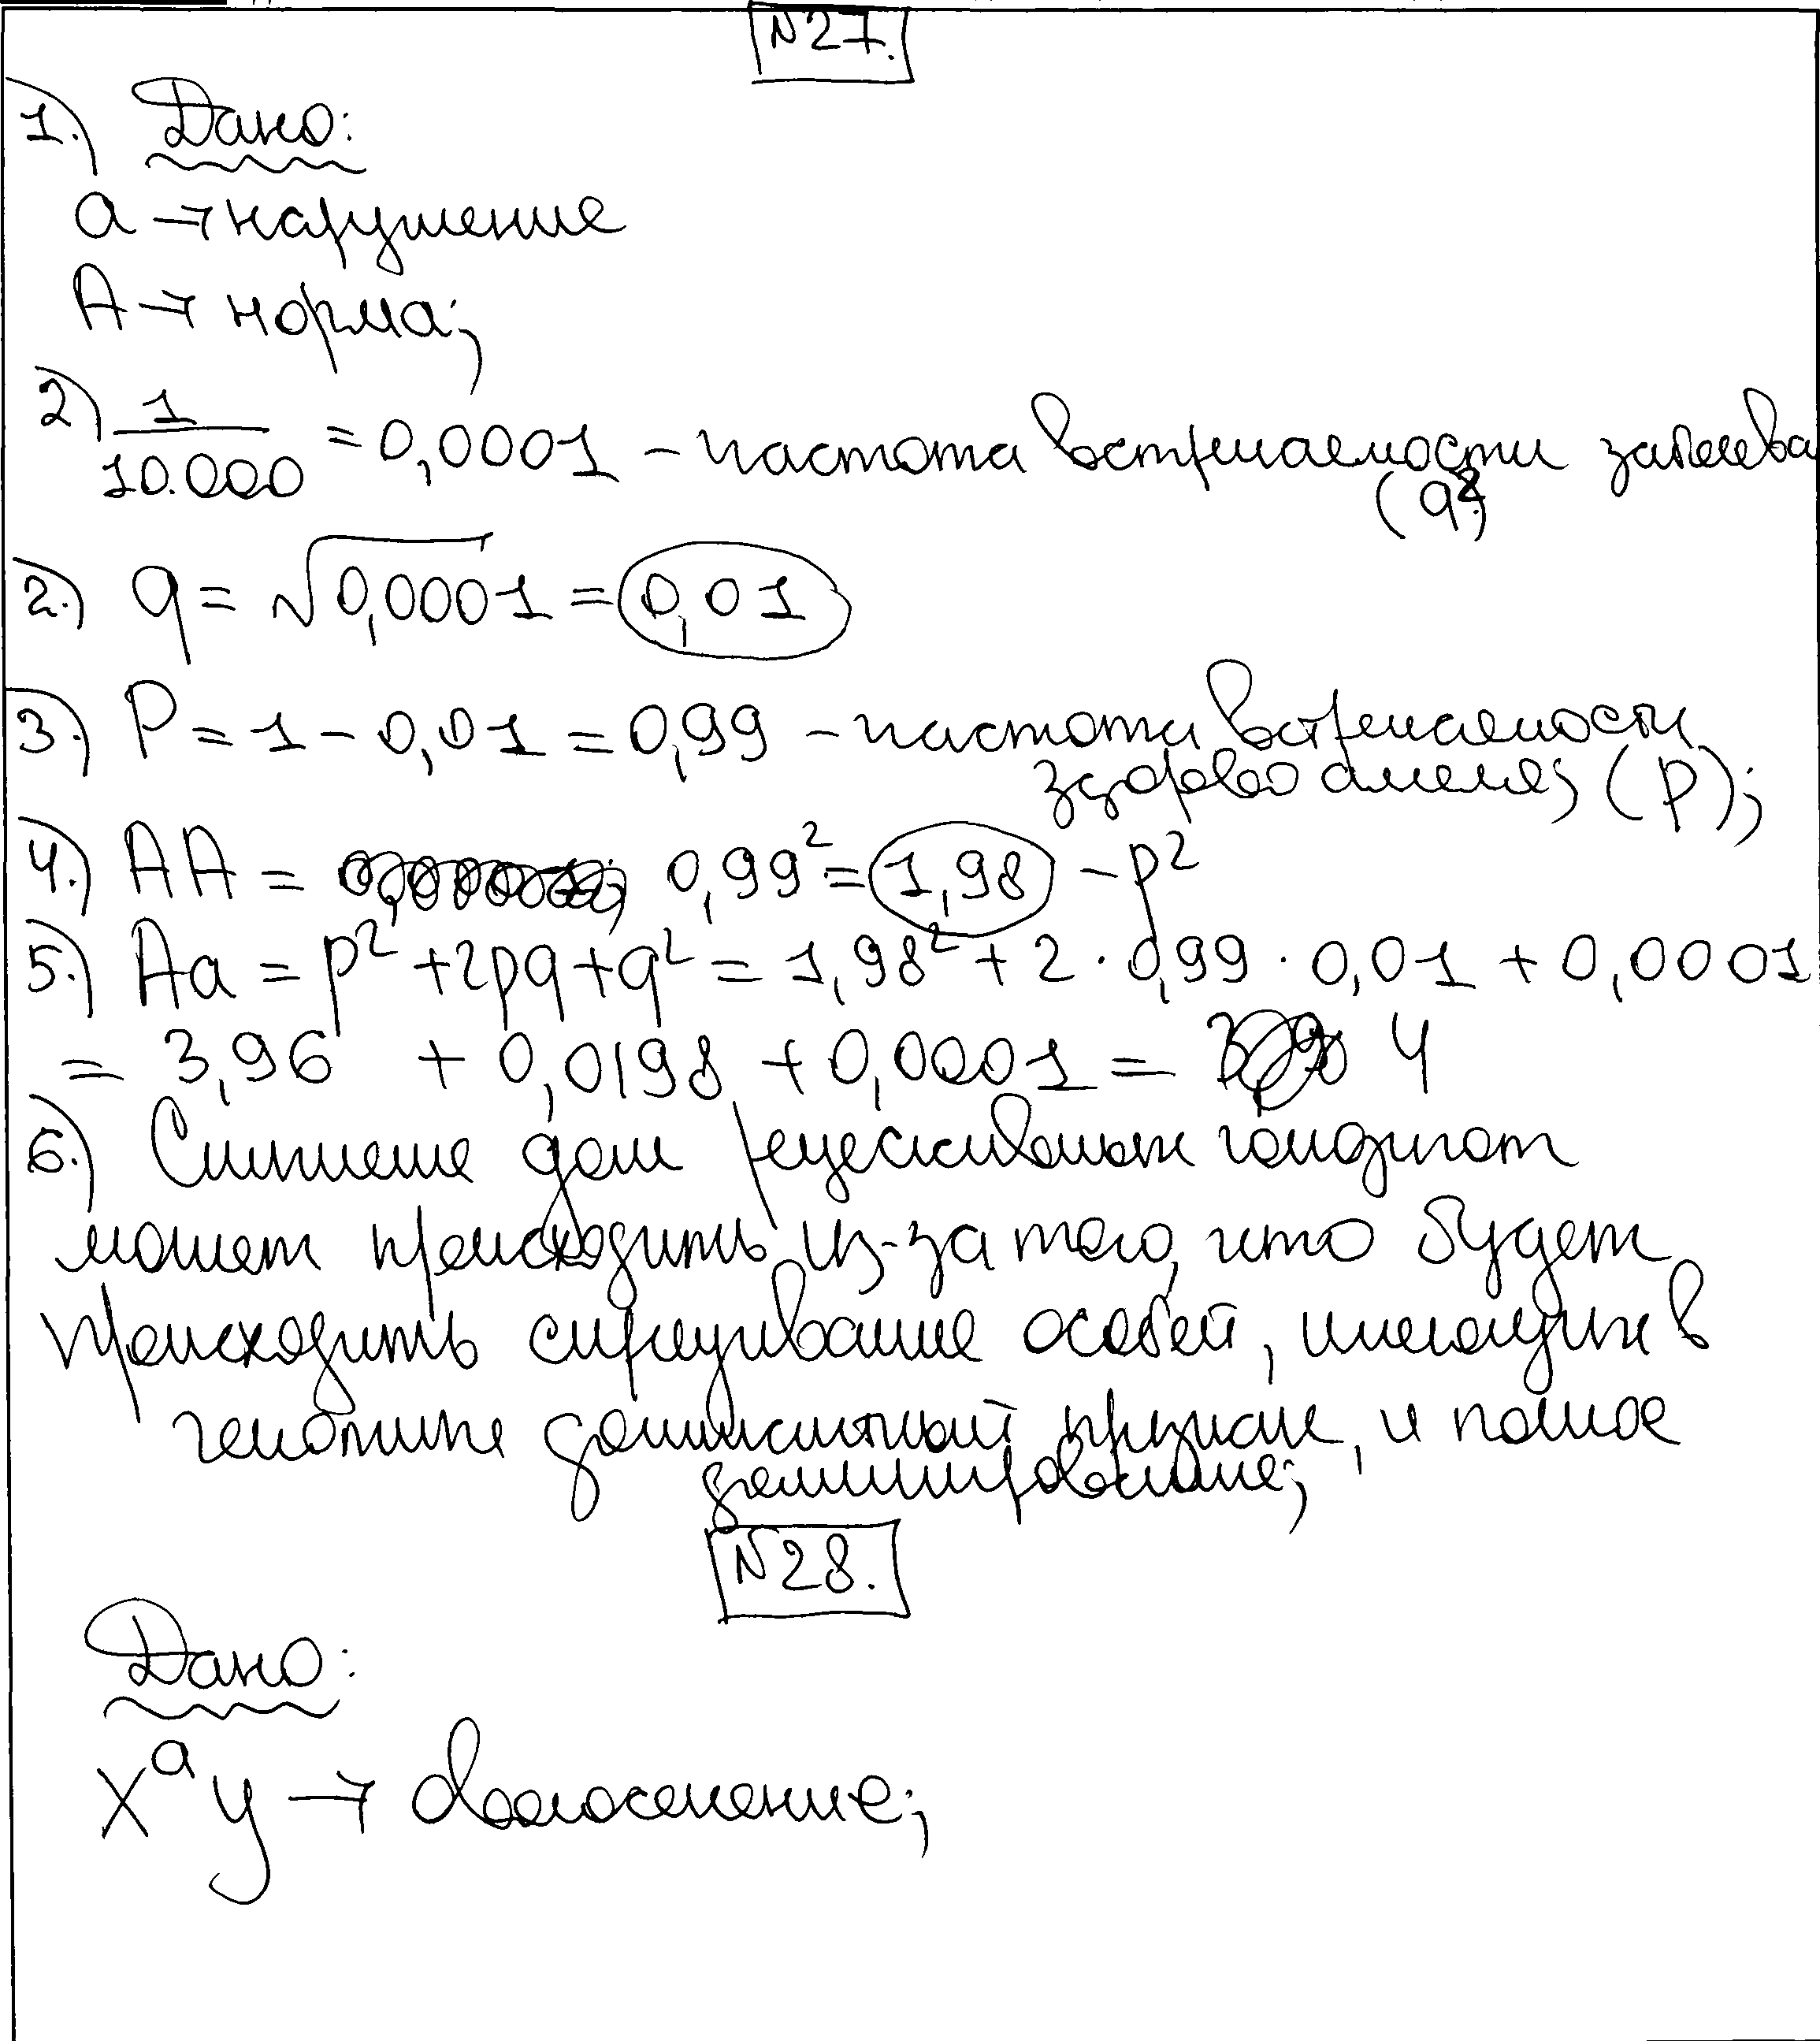 N27.
1.) Дано:
a → нарушение
A → норма;
2) 1/10.000 = 0,0001 – частота встречаемости заболева
(q²)
2.) q = √0,0001 = 0,01
3.) P = 1 – 0,01 = 0,99 – частота встречаемости
здорово аллеля; (p);
4.) AA = 0,99² = 1,98 – p²
5.) Aa = p² + 2pq + q² = 1,98² + 2 · 0,99 · 0,01 + 0,0001
= 3,96 + 0,0198 + 0,0001 = 4
6.) Снижение доли рецессивных гомозигот
может происходить из-за того, что будет
происходить скрещивание особей, имеющих в
генотипе доминантный признак, и полное
доминирование;
N28.
Дано:
XᵃY →